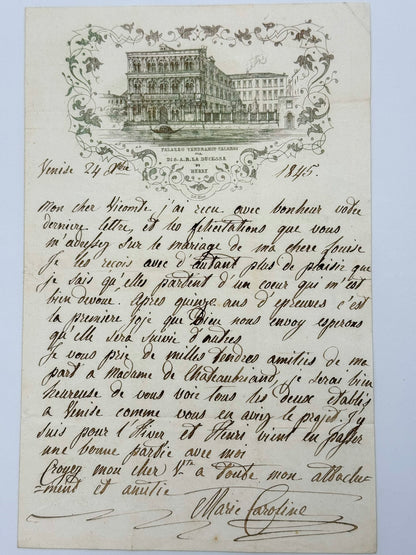 PALAZZO VENDRAMIN CALERGI
DI S.A.R. LA DUCESSE
DE
BERRY
Venise 24 1845
Mon cher Vicomte j'ai recu avec bonheur votre
derniere lettre, et les felicitations que vous
m'adressez sur le mariage de ma chere Louise
Je les reçois avec d'autant plus de plaisir que
je sais qu'elles partent d'un coeur qui m'est
bien devoué. Apres quinze ans d'epreuves c'est
la premiere joje que Dieu nous envoy esperons
qu'elle sera suivie d'autres
Je vous prie de milles tendres amitiés de ma
part a Madame de Chateaubriand, je serai bien
heureuse de vous voir tous les deux etablis
a Venise comme vous en aviez le projet. J'y
suis pour l'Hiver et Henri vient en passer
une bonne partie avec moi
Croyez mon cher Vte a toute mon attache-
-ment et amitié
Marie Caroline